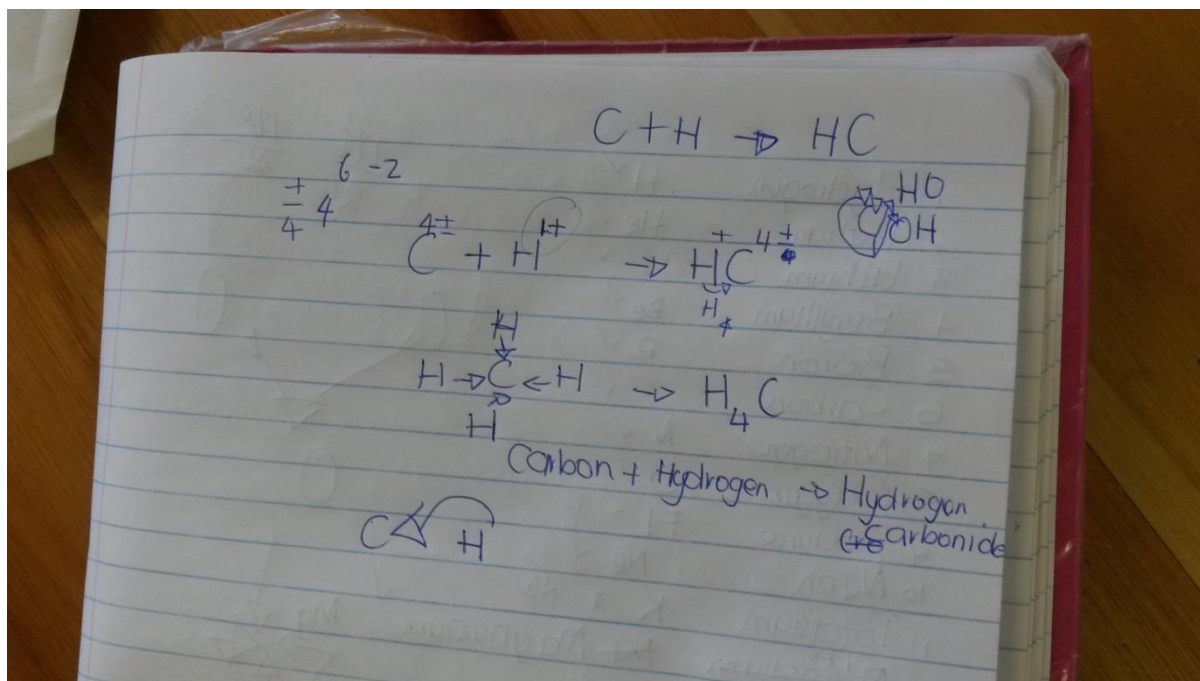 C + H → HC
6 -2
± 4 4
C 4± + H 1+ → H + C 4±
H 4
HO
OH
H
H → C ← H → H4C
H
Carbon + Hydrogen → Hydrogen
Carbonide
C H